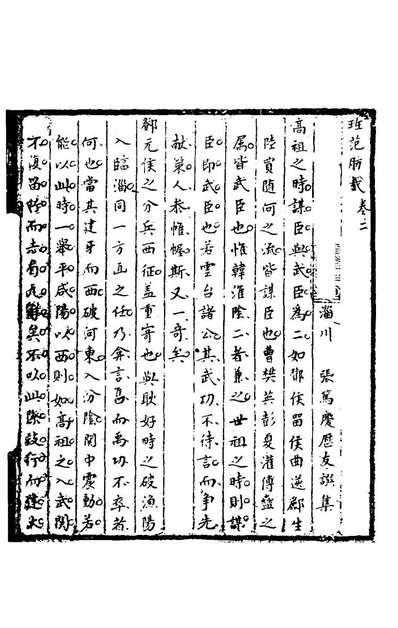 班范肪截卷二
淄川 張篤慶歷友譔集
高祖之時謀臣與武臣爲二如鄼侯留侯曲逆酈生
陸賈隨何之流皆謀臣也曹樊英彭夏灌傅盎之
属皆武臣也惟韓淮陰二者兼之世祖之時則謀
臣即武臣也若雲台諸公其武功不待言而爭先
敵萊人恭帷幄斯又一奇矣
鄧元侯之分兵西征盖重寄也與耿好時之破漁陽
入臨淄同一方面之任乃弇言而禹功不卒者
何也當其建牙而西破河東入汾陰関中震動若
能以此時一舉平咸陽以西則如高祖之入武関
不復留陸而有矣不以此除鼓行而